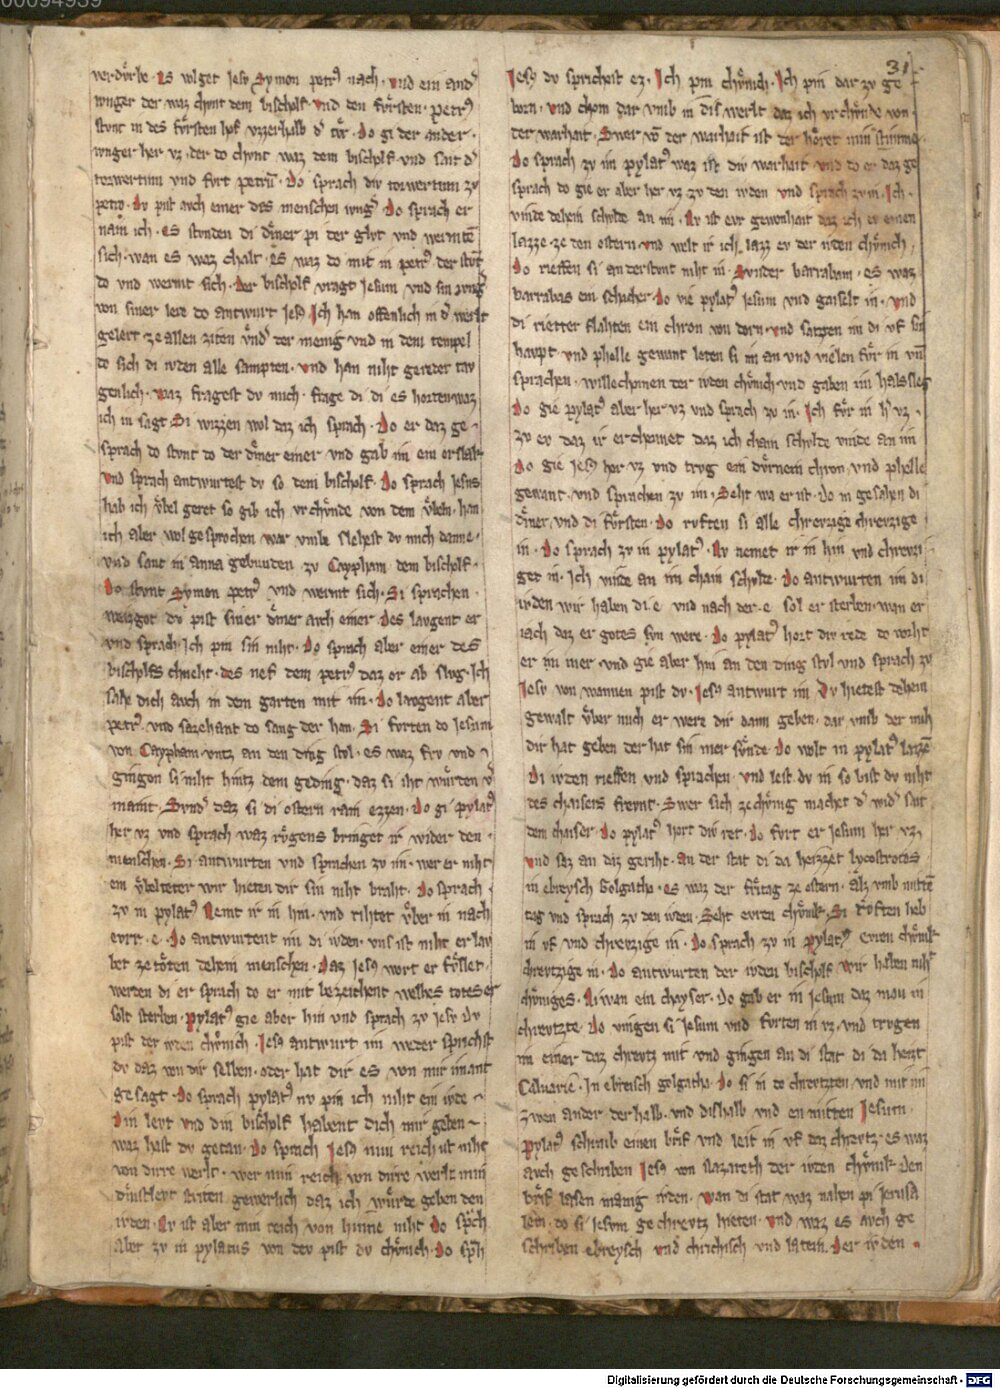 00094939
31.
verdurbe. Es volget Jesv Symon petrus nach. vnd ein ander
ivnger der waz chvnt dem bischolf. vnd den fvrsten. petrus
stvnt in des fvrsten hof vzzerhalb der tvr. Do gi der ander
ivnger her vz. der do chvnt waz dem bischolf. vnd sait der
torwertinn vnd fvrt petrum. Do sprach div torwertinn zv
petro. Dv pist avch einer des menschen ivnger. Do sprach er
nain ich. Es stvnden di diner pi der glvt vnd wermten
sich. wan es waz chalt. Es waz do mit in petrus der stvnt
do vnd wermt sich. Der bischolf vragt Jesum vnd sin ivnger
von siner lere do antwurt Jesus. Ich han offenlich in der werlt
gelert ze allen ziten vnder der menig vnd in dem tempel
do sich di ivden alle sampten. vnd han niht geredet tav
genlich. waz fragest dv mich. frage di di es horten waz
ich in sagt. Di wizzen wol daz ich sprach. Do er daz ge
sprach do stvnt do der diner einer vnd gab im ein orslak
vnd sprach antwurtest dv so dem bischolf. Do sprach Jesus
hab ich vbel geret so gib ich vrchvnde von dem vbeln. han
ich aber wol gesprochen war vmbe slehest dv mich danne.
vnd sant in anna gebunden zv Caypham dem bischolf.
Do stvnt Symon petrus vnd wermt sich. Si sprachen.
weizgot dv pist siner diner avch einer. Des laugent er
vnd sprach Ich pin sin niht. Do sprach aber einer des
bischolfs chneht. des nef dem petrus daz or ab slug. Ich
sahe dich auch in dem garten mit im. Do laugent aber
petrus. vnd sazehant do sang der han. Si furten do Jesum
von Caypham. vntz an den ding stvl. es waz frv vnd
gingen si niht hintz dem geding. daz si iht wurden ver
maint. Svnder daz si di ostern rain ezzen. Do gi pylatus
her vz vnd sprach waz rvgens bringet ir wider den
menschen. Si antwurten vnd sprachen zv im. wer er niht
ein vbelteter wir hieten dir sin niht braht. Do sprach
zv in pylatus Nemt ir in hin. vnd rihtet vber in nach
evrr. e. Do antwurtent im di ivden. vns ist niht erlav
bet ze toten dehein menschen. Daz Jesus wort erfvllet
werden di er sprach do er mit bezeichent welhes todes er
solt sterben. Pylatus gie aber hin vnd sprach zv Jesv Dv
pist der ivden chvnich. Jesus antwurt im weder sprichst
dv daz von dir selben. oder hat dir es von mir imant
gesagt. Do sprach pylatus nv pin ich niht ein ivde
Din levt vnd din bischolf habent dich mir geben
waz hast dv getan. Do sprach Jesus min reich ist niht
von dirre werlt. wer min reich von dirre werlt min
dinstlevt striten gewerlich daz ich wurde geben den
ivden. Nv ist aber min reich von hinne niht. Do sprach
aber zv in pylatus von dev pist dv chvnich. Do sprach
Jesus dv sprichest ez. Ich pin chvnich. Ich pin dar zv ge
born. vnd chom dar vmb in dis werlt daz ich vrchvnde von
der warhait. Swer von der warhait ist der horet min stimme.
Do sprach zv im pylatus waz ist div warhait vnd do er daz ge
sprach do gie er aber her vz zv den ivden vnd sprach zv in. Ich
vinde dehein schvlde an im. Nv ist evr gewonhait daz ich ev einen
lazze. ze den ostern vnd welt ir ich lazz ev der ivden chvnich.
Do rieffen si anderstvnt niht in. Svnder barraban. es waz
barrabas ein schacher. Do vie pylatus Jesum vnd gaiselt in. vnd
di rietter flahten ein chron von dorn. vnd satzten im di vf sin
haupt. vnd phelle gewant leten si im an vnd vielen fvr in vnd
sprachen. willechomen der ivden chvnich. vnd gaben im halssleg
Do gie pylatus aber her vz vnd sprach zv in. Ich fvr in her vz
zv ev daz ir erchennet daz ich chain schvlde vinde an im
Do gie Jesus her vz vnd trvg ein dvrnein chron vnd phelle
gewant. vnd sprachen zv im. Seht wa er ist. do in gesahen di
diner vnd di fvrsten. Do rvften si alle chrevzige chrevzige
in. Do sprach zv in pylatus. Nv nemet ir in hin vnd chrevzi
get in. Ich vinde an im chain schvlde. Do antwurten im di
ivden wir haben di. e vnd nach der. e sol er sterben. wan er
iach daz er gotes svn were. Do pylatus hort div rede do vorht
er im mer. vnd gie aber hin an den ding stvl vnd sprach zv
Jesv von wannen pist dv. Jesus antwurt im Dv hietest dehein
gewalt vber mich er were dir dann geben. dar vmb der mich
dir hat geben der hat sin mer svnde. Do wolt in pylatus lazzen
Di ivden rieffen vnd sprachen. vnd lest dv in so bist dv niht
des chaisers frevnt. Swer sich ze chvnig machet der wider sait
dem chaiser. Do pylatus hort die ret. do fvrt er Jesum her vz
vnd saz an daz geriht. an der stat di da heizzet lycostrotos
in ebreysch Golgatha. es waz der fritag ze ostern. alz vmb mitten
tag vnd sprach zv den ivden. Seht evren chvnik. Si rvften heb
in vf vnd chrevzige in. Do sprach zv in pylatus. evren chvnik
chrevtzige in. Do antwurten der ivden bischolf wir haben niht
chvniges. Niwan ein chayser. Do gab er in Jesum daz man in
chrevtzte. Do viengen si Jesum vnd fvrten in vz. vnd trvgen
im einer daz chrevtz mit vnd gingen an di stat di da heizt
Caluarie. In ebreisch golgatha. Do si in do chrevtzten vnd mit im
zwen ander der halb. vnd dishalb vnd en mitten Jesum.
Pylatus schreib einen brif vnd leit in vf daz chrevtz. es waz
avch geschriben Jesus von Nazareth der ivden chvnik. Den
brif lasen manig ivden. wan di stat waz nahen pi Jerusa
lem. do si Jesvm gechrevtz hieten. vnd waz es avch ge
schriben ebreysch vnd chrichisch vnd latein. Der ivden
Digitalisierung gefördert durch die Deutsche Forschungsgemeinschaft - DFG